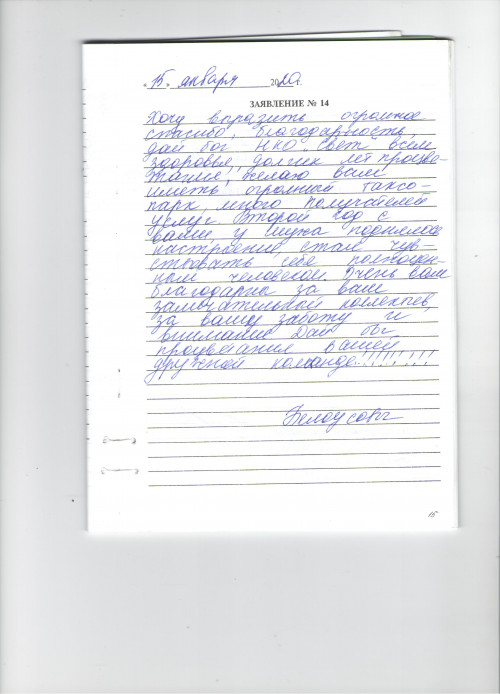 "15" января 2020г.
ЗАЯВЛЕНИЕ № 14
Хочу выразить огромное
спасибо, благодарность,
дай бог НКО „Свет" всем
здоровья, долгих лет процве-
тания! Желаю вам
иметь огромный таксо-
парк, много получателей
услуг. Второй год с
вами, у мужа поднялось
настроение, стал чув-
ствовать себя полноцен-
ным человеком. Очень вам
благодарна за ваш
замечательной коллектив,
за вашу заботу и
внимание. Дай бог
процветания вашей
дружной команде!!!!!!!!
Белоусовы
15